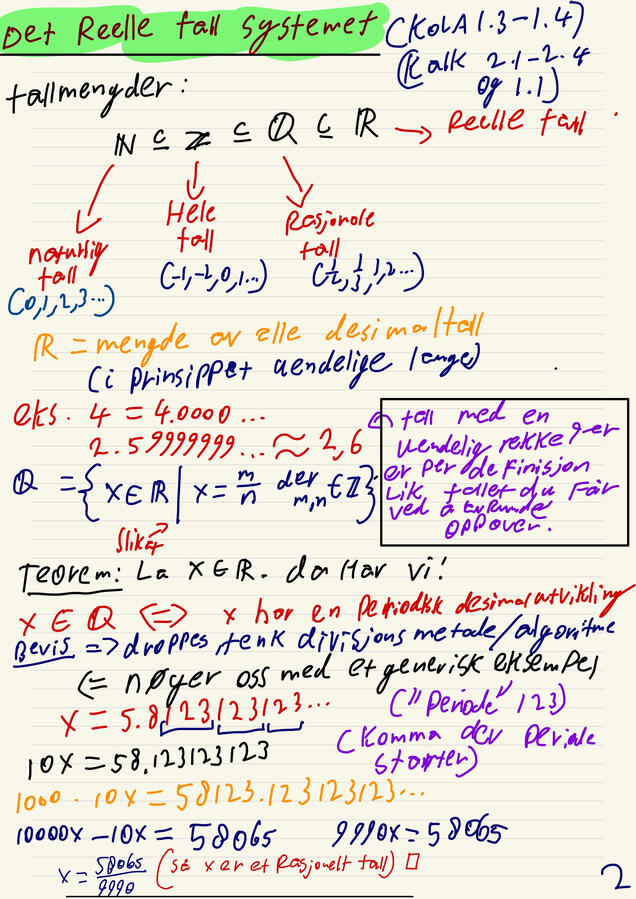 Det Reelle tall systemet (KOLA 1.3-1.4)
(Kalk 2.1-2.4
og 1.1)
tallmengder:
ℕ ⊆ ℤ ⊆ ℚ ⊆ ℝ → Reelle tall
naturlig tall
(0,1,2,3...)
Hele tall
(-1,-2,0,1...)
Rasjonale tall
(1/2, 1/3, 1, 2...)
ℝ = mengde av alle desimaltall
(i prinsippet uendelige lange)
eks. 4 = 4.0000...
2.59999999... ≈ 2,6
tall med en
uendelig rekke 9-er
er per definisjon
Lik tallet du får
ved å avrunde
oppover.
ℚ = {x∈ℝ | x = m/n der m,n ∈ ℤ}
slik at
Teorem: La x∈ℝ. da Har vi!
x ∈ ℚ <=> x har en Periodisk desimalutvikling
Bevis => droppes, tenk divisjons metode/algoritme
(<= nøyer oss med et generisk eksempel
x = 5.8123123123... ("Periode" 123)
(Komma der periode
starter)
10x = 58.123123123
1000 · 10x = 58123.123123123...
10000x - 10x = 58065 9990x = 58065
x = 58065/9990 (så x er et Rasjonelt tall) □
2